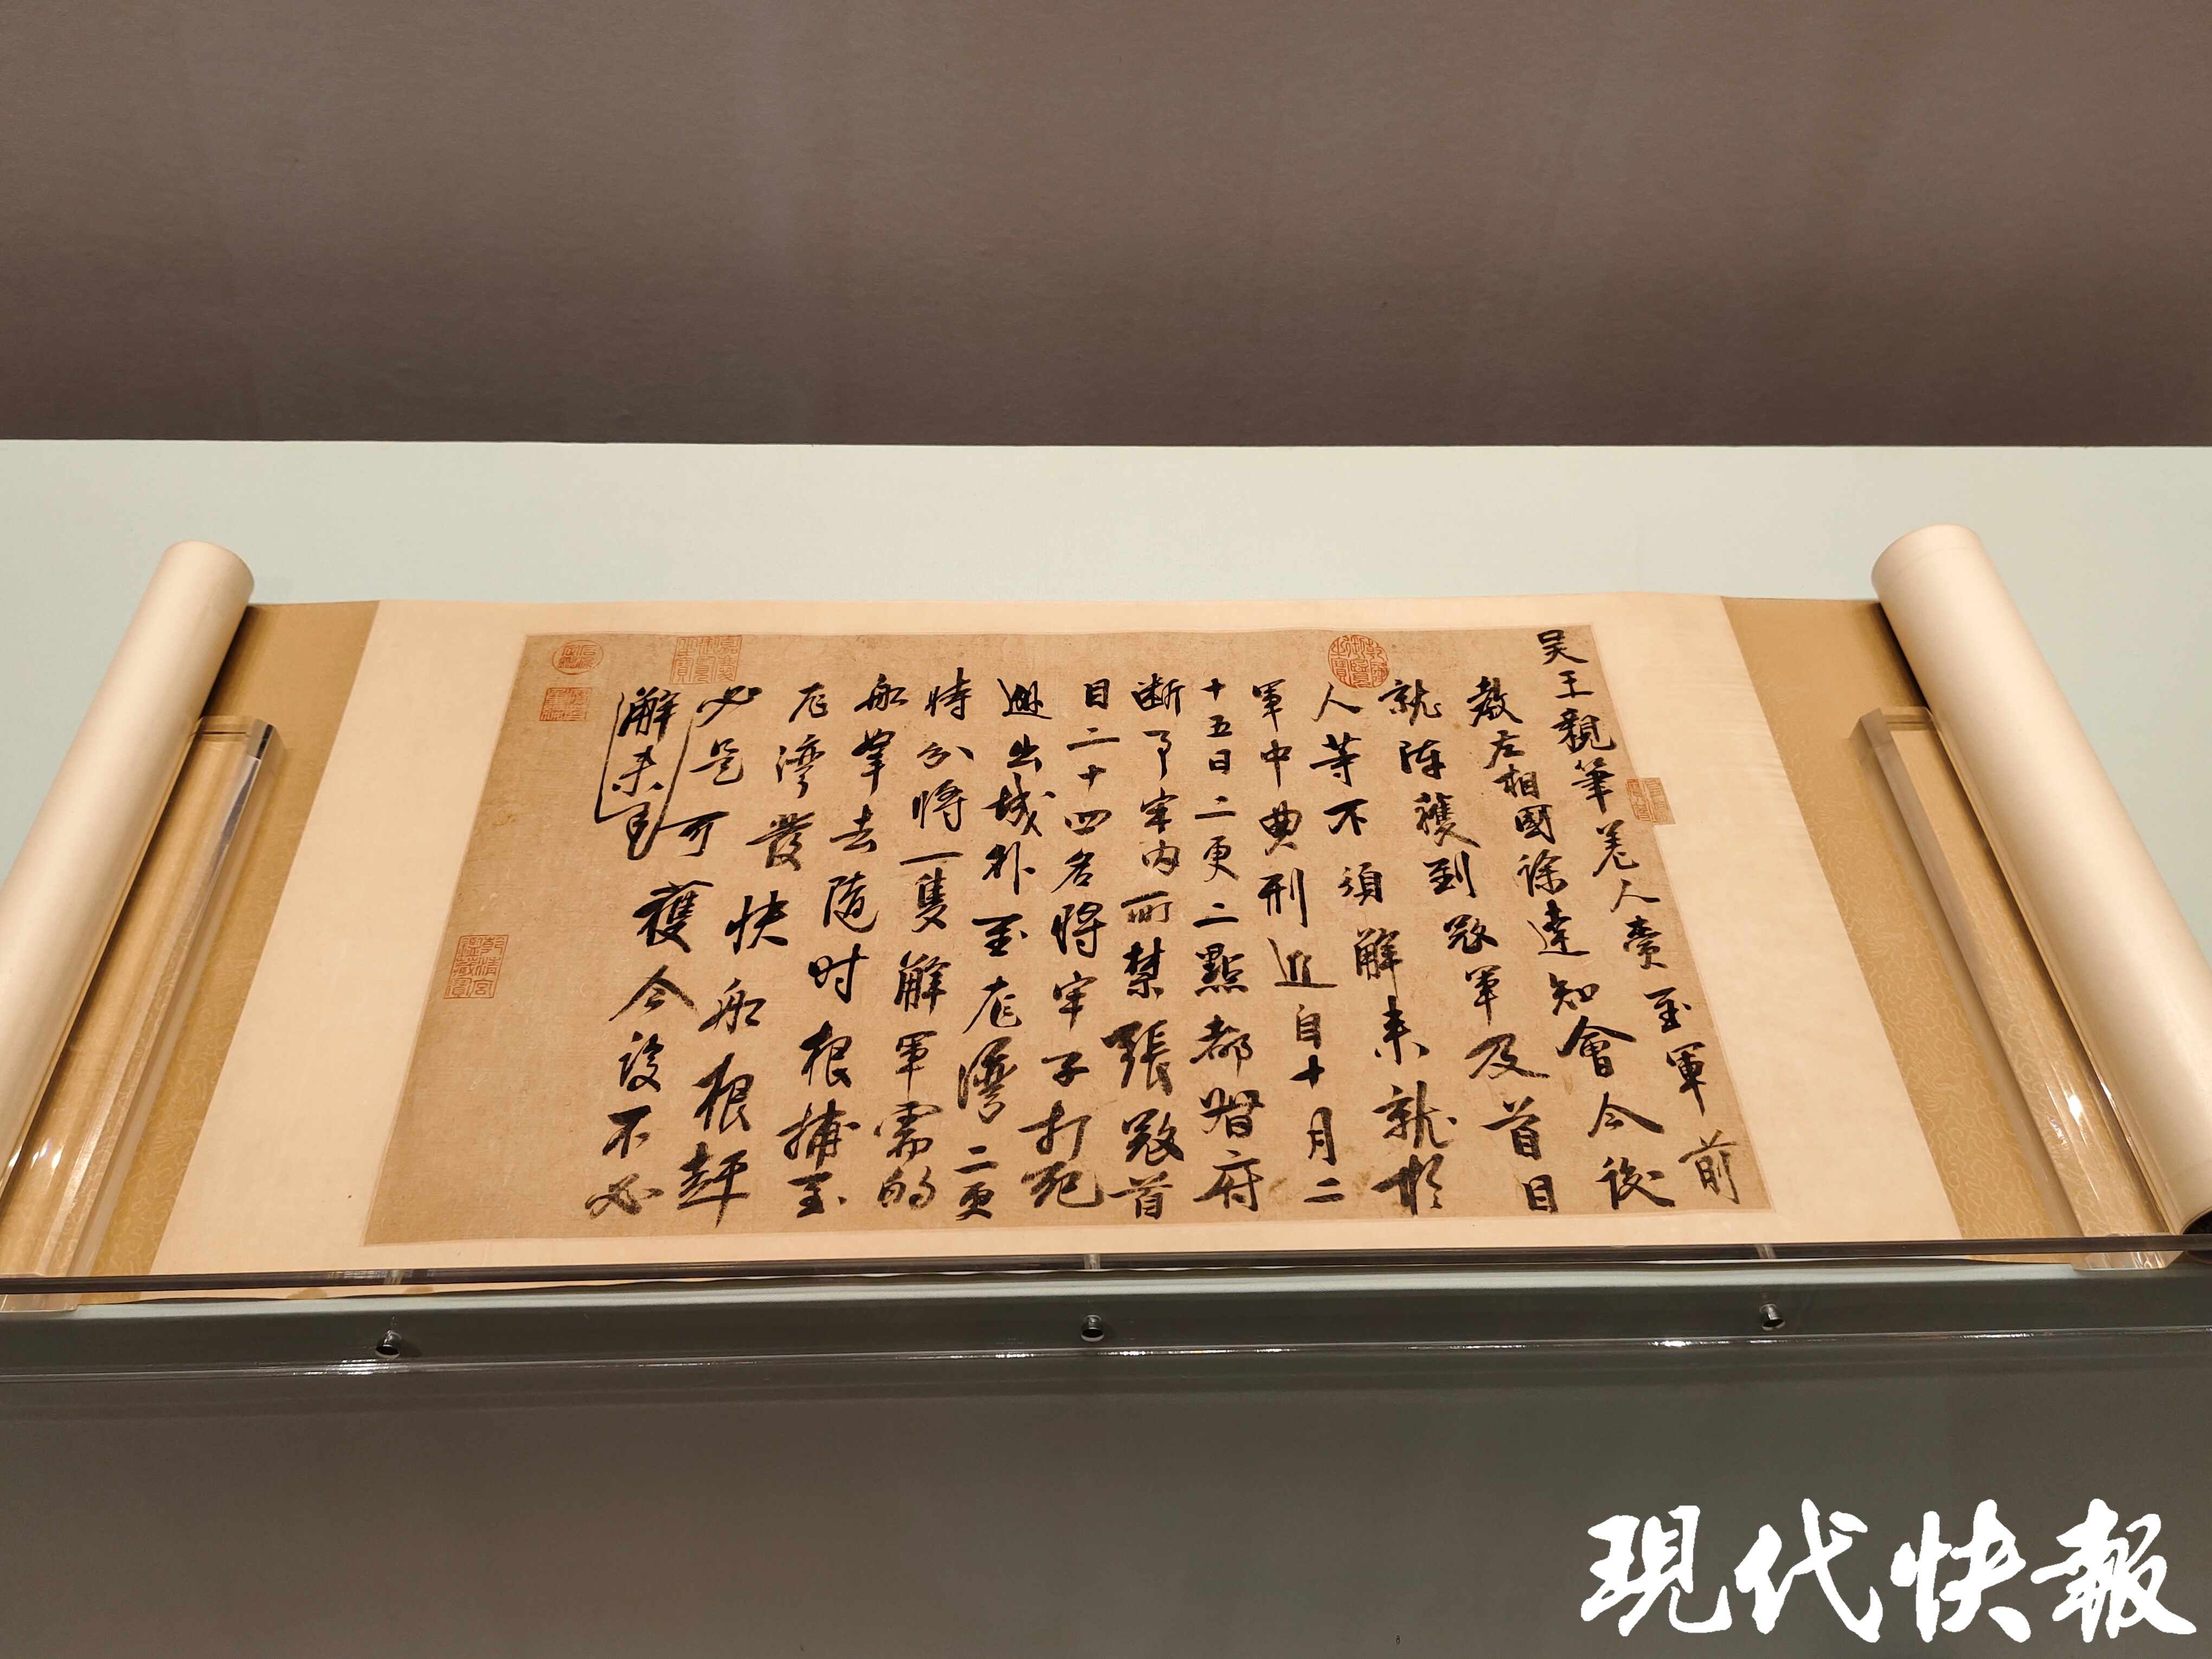 吳王親筆差人賫至軍前
教左相國徐達知會今後
就陣獲到寇軍及首目
人等不須解来就於
軍中典刑近自十月二
十五日二更二點都督府
断了牢内所禁張寇首
目二十四名將牢子打死
逃出城外至龙灣二更
時分將一隻解軍需的
船拿去随时根捕至
龙灣發快船根赶
必是可獲今後不必
解来
乾清宮鑒藏寶
現代快報